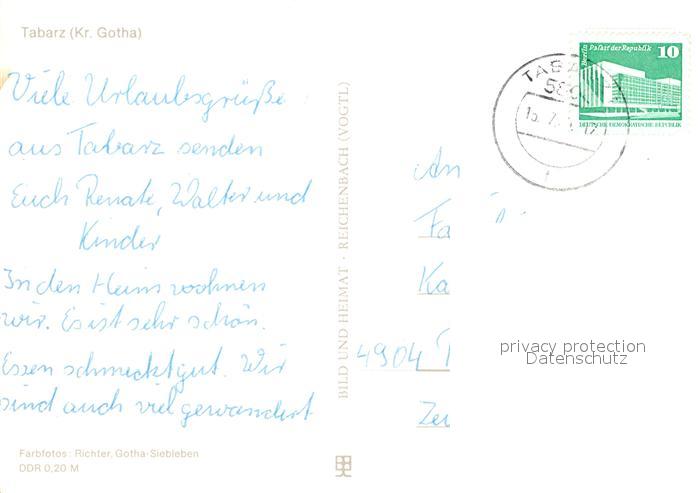 Tabarz (Kr. Gotha)
Viele Urlaubsgrüße
aus Tabarz senden
Euch Renate, Walter und
Kinder
In den Heim wohnen
wir. Es ist sehr schön.
Essen schmeckt gut. Wir
sind auch viel gewandert
Farbfotos: Richter, Gotha-Siebleben
DDR 0,20 M
BILD UND HEIMAT · REICHENBACH (VOGTL)
Berlin Palast der Republik
10
DEUTSCHE DEMOKRATISCHE REPUBLIK
An
Fa
Ka
4904 T
Zei
privacy protection
Datenschutz